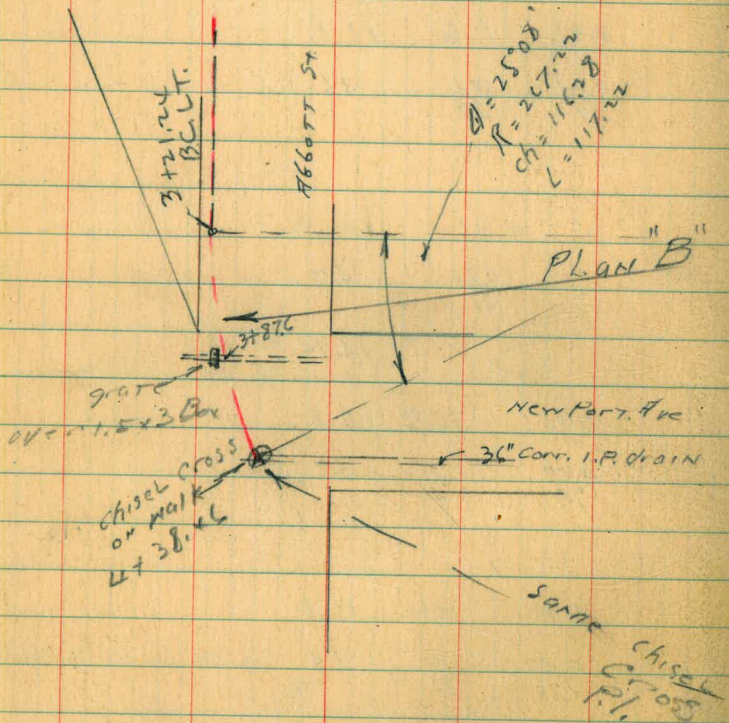 3+21.24
B.C. LT.
Abbott St
Δ = 25°08'
R = 267.22
Ch = 116.28
L = 117.22
PLAN "B"
3+87.6
grate
over 1.5 x 3 Box
New Port Ave
36" Corr. I.P. drain
chisel cross
on walk
4+38.46
Same chisel
Cross
P.I.